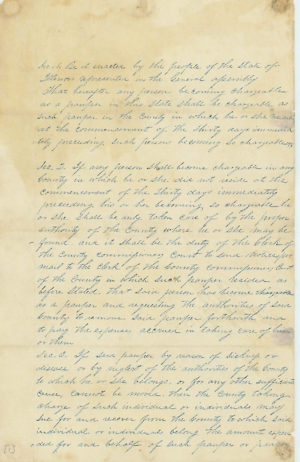 Sec 1. Be it enacted by the people of the State of
Illinois represented in the General Assembly
That hereafter any person becoming chargeable
as a pauper in this state shall be chargeable as
such pauper in the County in which he or she resided
at the commencement of the thirty days immedia
tely preceding such person becoming so chargeable
Sec. 2. If any person shall become chargeable in any
County in which he or she did not reside at the
commencement of the thirty days immediately
preceding his or her becoming so chargeable he
or she shall be duly taken care of by the proper
authority of the County where he or she may be
found and it shall be the duty of the Clerk of
the County Commissioners Court to send notice by
mail to the Clerk of the County Commissioners Court
of the County in which such pauper resided as
before stated that said person has become chargeable
as a pauper and requesting the authorities of said
County to remove said pauper forthwith and
to pay the expenses accrued in taking care of him
or them
Sec. 3. If said pauper by reason of sickness or
disease or by neglect of the authorities of the County
to which he or she belongs, or for any other sufficient
cause cannot be removed then the County taking
charge of such individual or individuals may
sue for and recover from the County to which said
individual or individuals belong the amount expen
ded for and behalf of such pauper or paupers